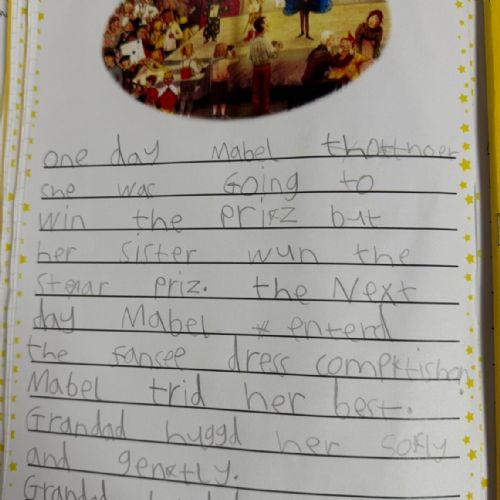 one day Mabel
she was Going to
win the prixz but
her sister wun the
Stear priz. the Next
day Mabel enterd
the fansee dress compktishon
Mabel trid her best.
Grandad huggd her sofly
and gentlly.
Grandad